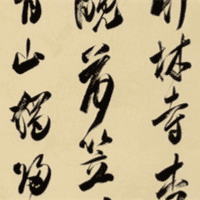 竹林寺杳
晚荷笠
青山獨歸